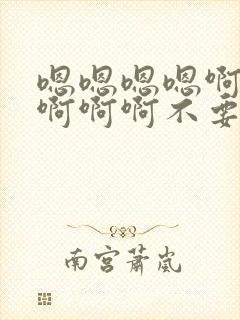 嗯嗯嗯嗯啊
啊啊啊不要
南宫萧岚